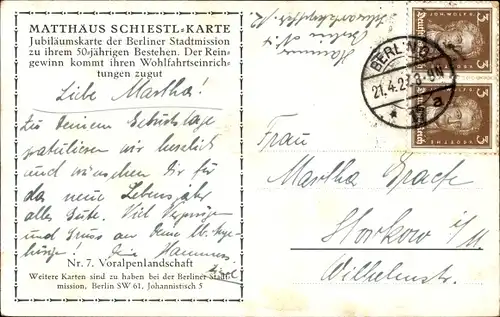 MATTHÄUS SCHIESTL-KARTE
Jubiläumskarte der Berliner Stadtmission
zu ihrem 50jährigen Bestehen. Der Rein-
gewinn kommt ihren Wohlfahrtseinrich-
tungen zugut
Liebe Martha!
Zu Deinem Geburtstage
gratulieren wir herzlich
und wünschen Dir für
das neue Lebensjahr
alles Gute. Viel Vergnügen
und Gruss an Deine
Nr. 7. Voralpenlandschaft
Weitere Karten sind zu haben bei der Berliner Stadt-
mission, Berlin SW 61, Johannistisch 5
Berlin N. 4
BERLIN
21.4.2
a
3
3
Deutsches Reich
Frau
Martha
Storkow i/M
Wilhelmstr.